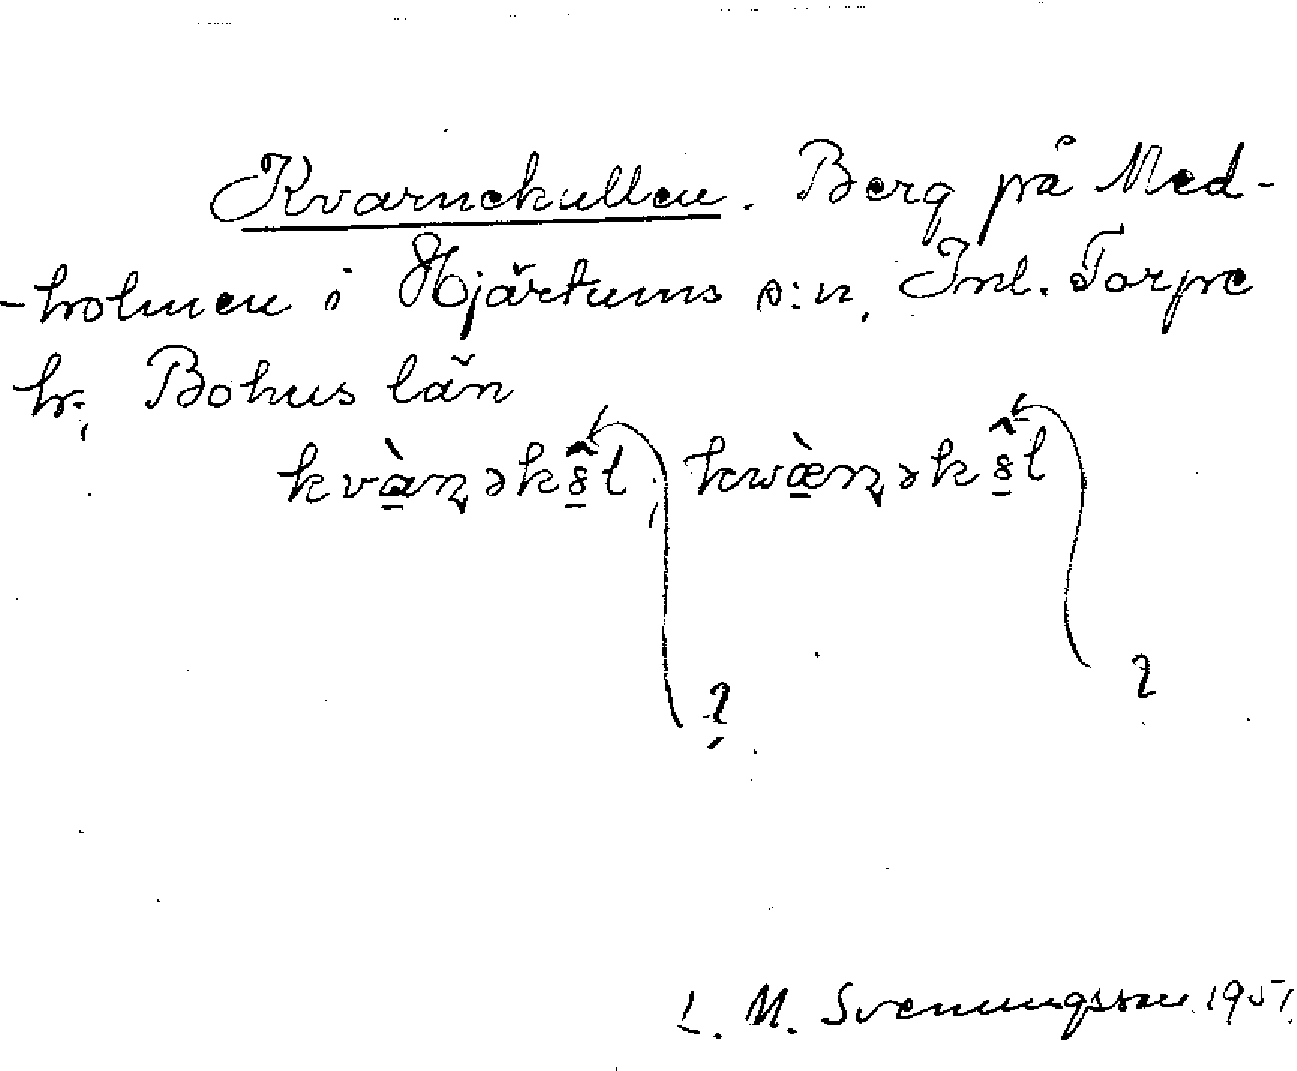 Kvarnekullen. Berg på Med-
-holmen i Hjärtums s:n, Inl. Torpe
hr; Bohus län
kvàɳəkȣ̂l, kwæ̀ɳəkȣ̂l
L. M. Svenungsson 1951